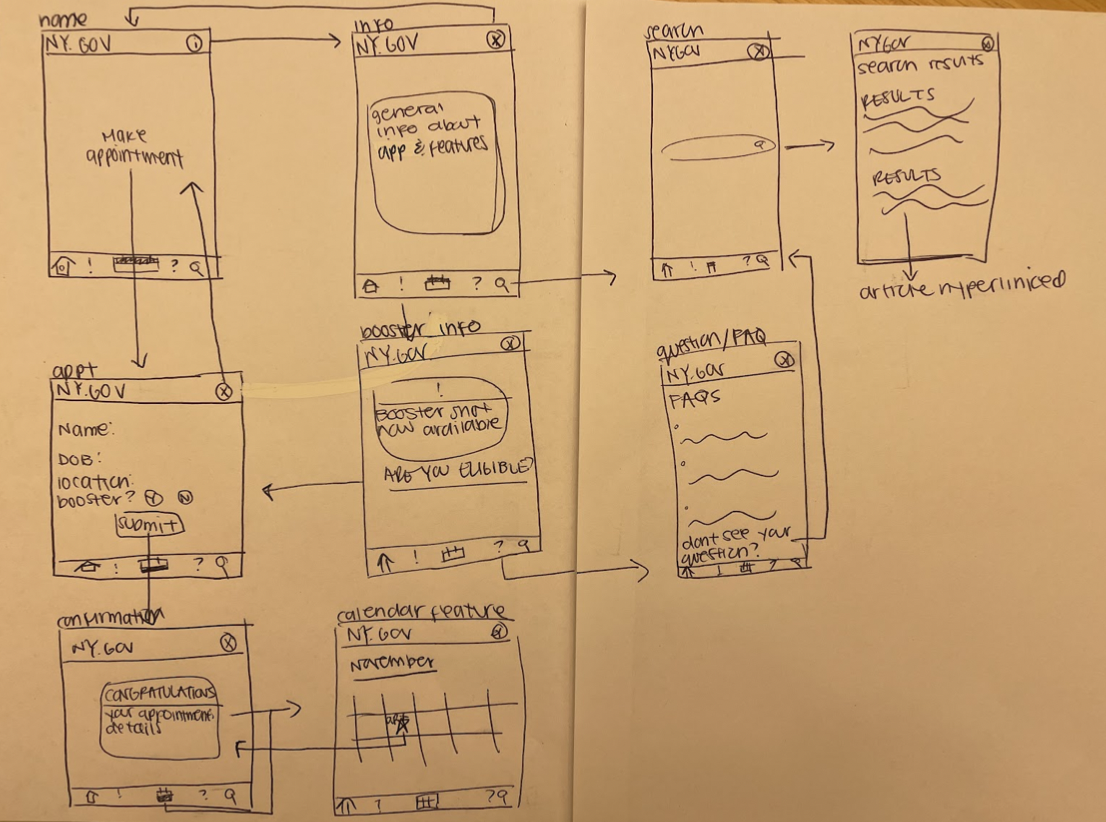 name
NY.GOV
i
Make
appointment
! ?
info
NY.GOV X
general
info about
app & features
! ?
search
NYGOV X
! ?
NYGOV X
search results
RESULTS
RESULTS
article hyperlinked
appt
NY.GOV X
Name:
DOB:
location:
booster? Y N
submit
! ?
booster info
NY.GOV X
!
Booster shot
now available
ARE YOU ELIGIBLE?
! ?
question/FAQ
NY.GOV X
FAQs
dont see your
question?
! ?
confirmation
NY.GOV X
CONGRATULATIONS
your appointment
details
! ?
calendar feature
NY.GOV X
November
! ?